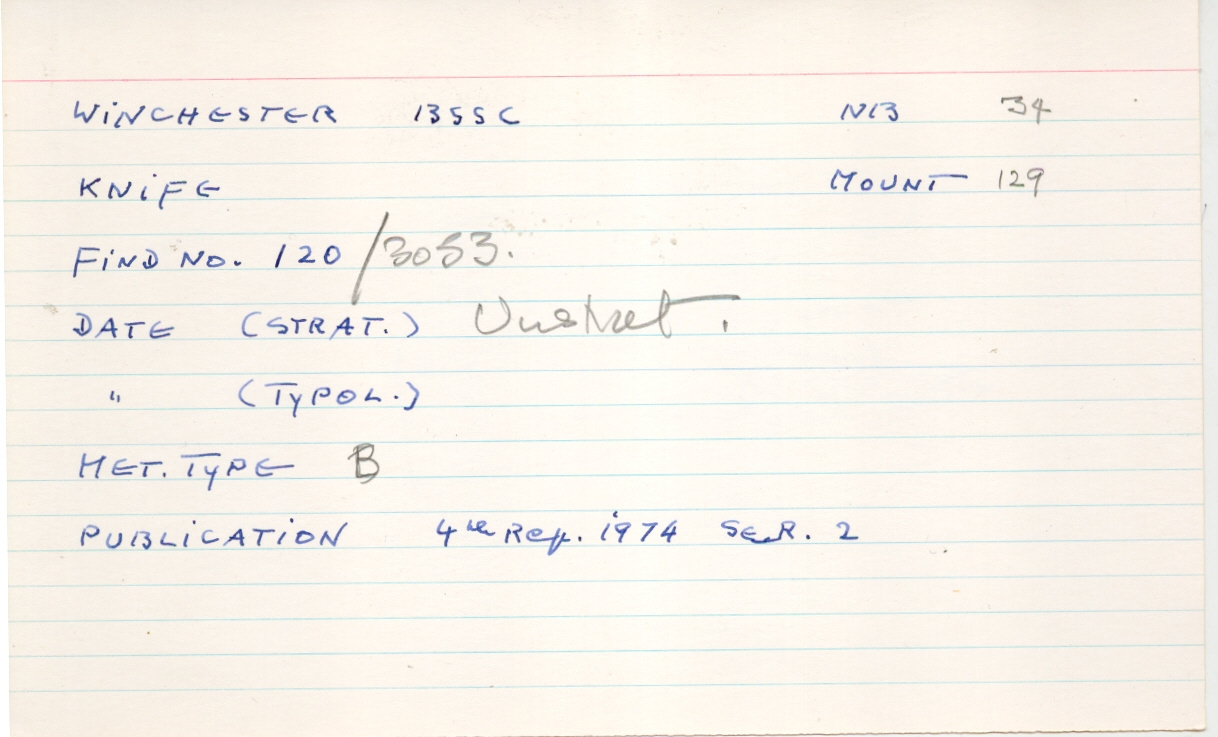 WINCHESTER 1355C NB 34
KNIFE MOUNT 129
FIND NO. 120/3053.
DATE (STRAT.) Unstrat.
" (TYPOL.)
MET. TYPE B
PUBLICATION 4th Rep. 1974 SER. 2